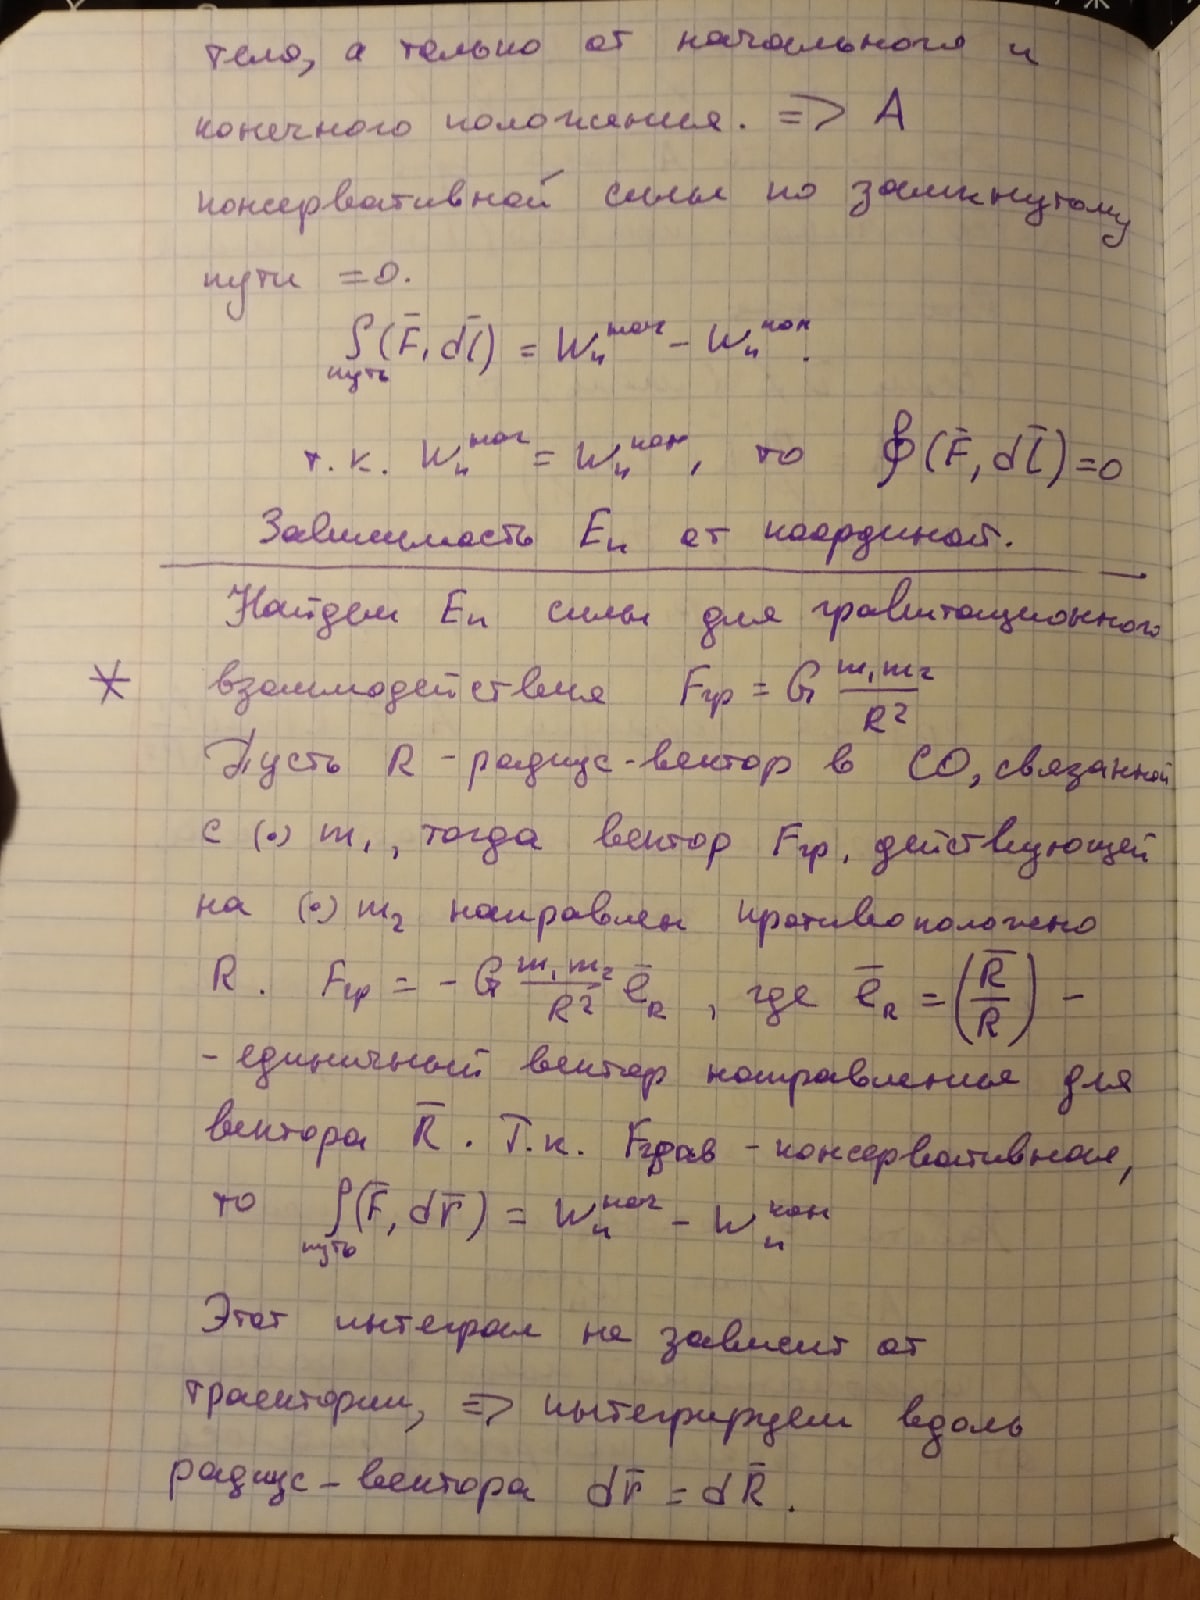 тела, а только от начального и
конечного положения. => А
консервативной силы по замкнутому
пути = 0.
∫(F̄, dl̄) = Wп^нач - Wп^кон.
путь
т.к. Wп^нач = Wп^кон, то ∮(F̄, dl̄) = 0
Зависимость Eп от координат.
Найдем Eп силы для гравитационного
* взаимодействия Fгр = G m₁m₂/R²
Пусть R - радиус-вектор в СО, связанной
с (•) m₁, тогда вектор Fгр, действующей
на (•) m₂ направлен противоположно
R. Fгр = -G m₁m₂/R² ēR, где ēR = (R̄/R) -
- единичный вектор направления для
вектора R̄. Т.к. Fграв - консервативная,
то ∫(F̄, dr̄) = Wп^нач - Wп^кон
путь
Этот интеграл не зависит от
траектории, => интегрируем вдоль
радиус-вектора dr̄ = dR̄.